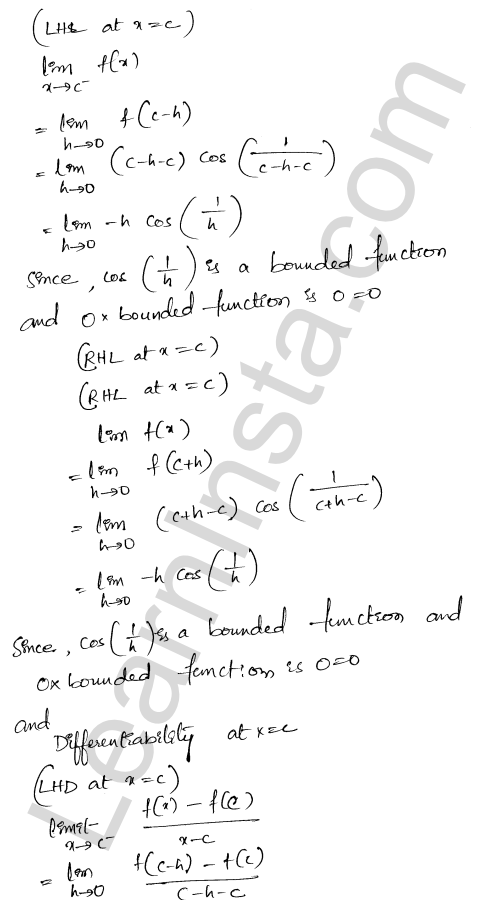 (LHL at x=c)
lim f(x)
x→c⁻
= lim f(c-h)
h→0
= lim (c-h-c) cos (1/(c-h-c))
h→0
= lim -h cos (1/h)
h→0
Since, cos (1/h) is a bounded function
and 0× bounded function is 0=0
(RHL at x=c)
(RHL at x=c)
lim f(x)
= lim f(c+h)
h→0
= lim (c+h-c) cos (1/(c+h-c))
h→0
= lim -h cos (1/h)
h→0
Since, cos (1/h) is a bounded function and
0× bounded function is 0=0
and
Differentiability at x=c
(LHD at x=c)
limit f(x) - f(c)
x→c⁻ x-c
= lim f(c-h) - f(c)
h→0 c-h-c
LearnInsta.com